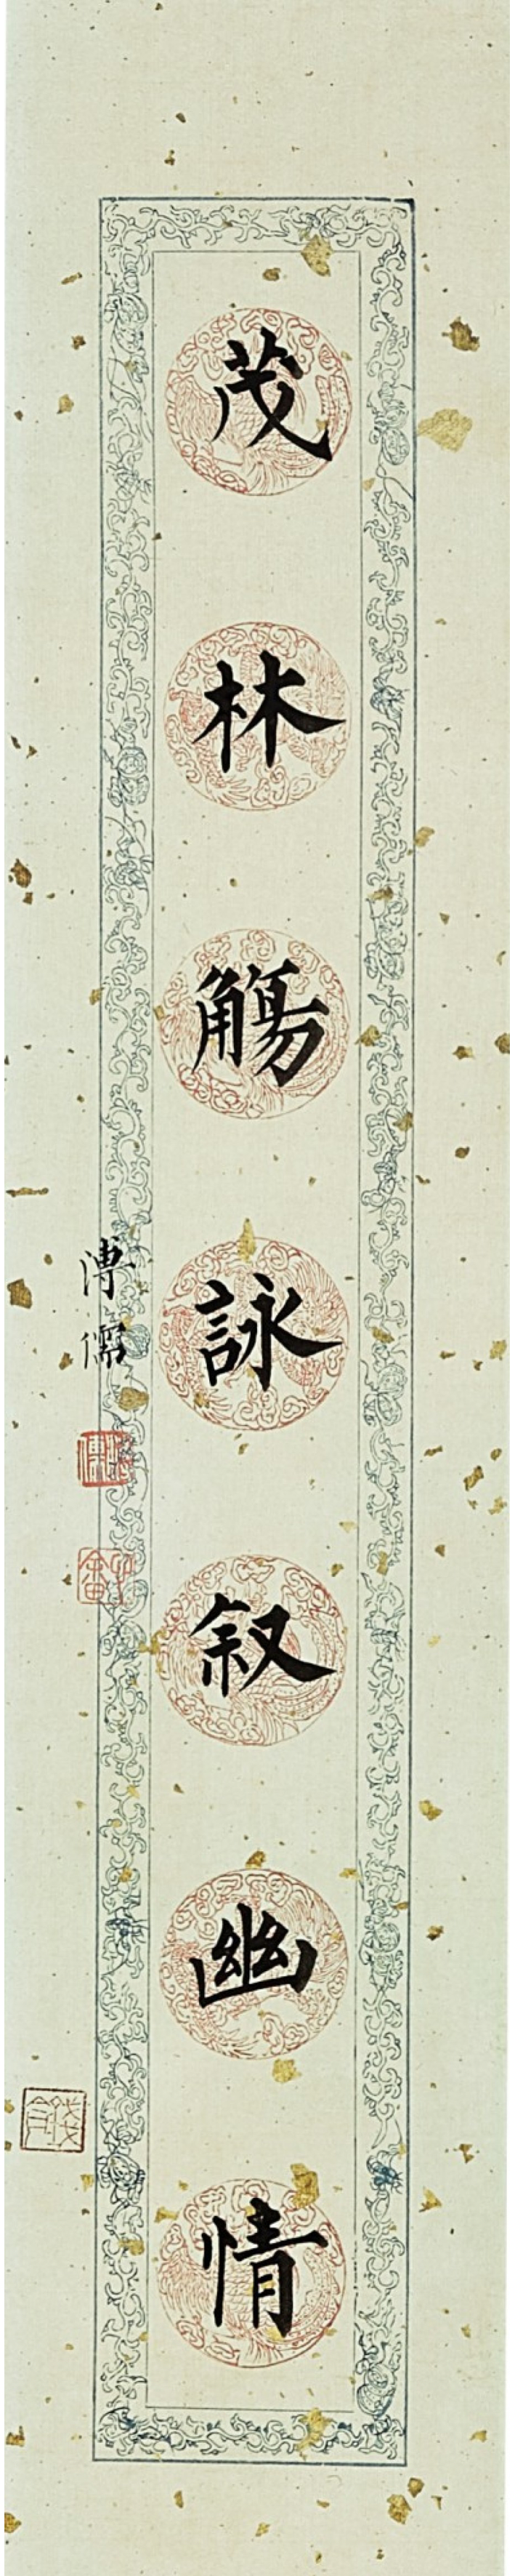 茂林觴詠叙幽情
溥儒